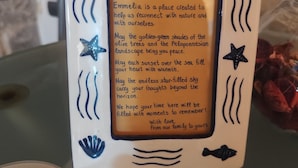 Emmelia is a place created to
help us reconnect with nature and
with ourselves.
May the golden-green shades of the
olive trees and the Peloponnesian
landscape bring you peace.
May each sunset over the sea, fill
your heart with warmth.
May the endless star-filled sky
carry your thoughts beyond the
horizon.
We hope your time here will be
filled with moments to remember!
With love,
from our family to yours